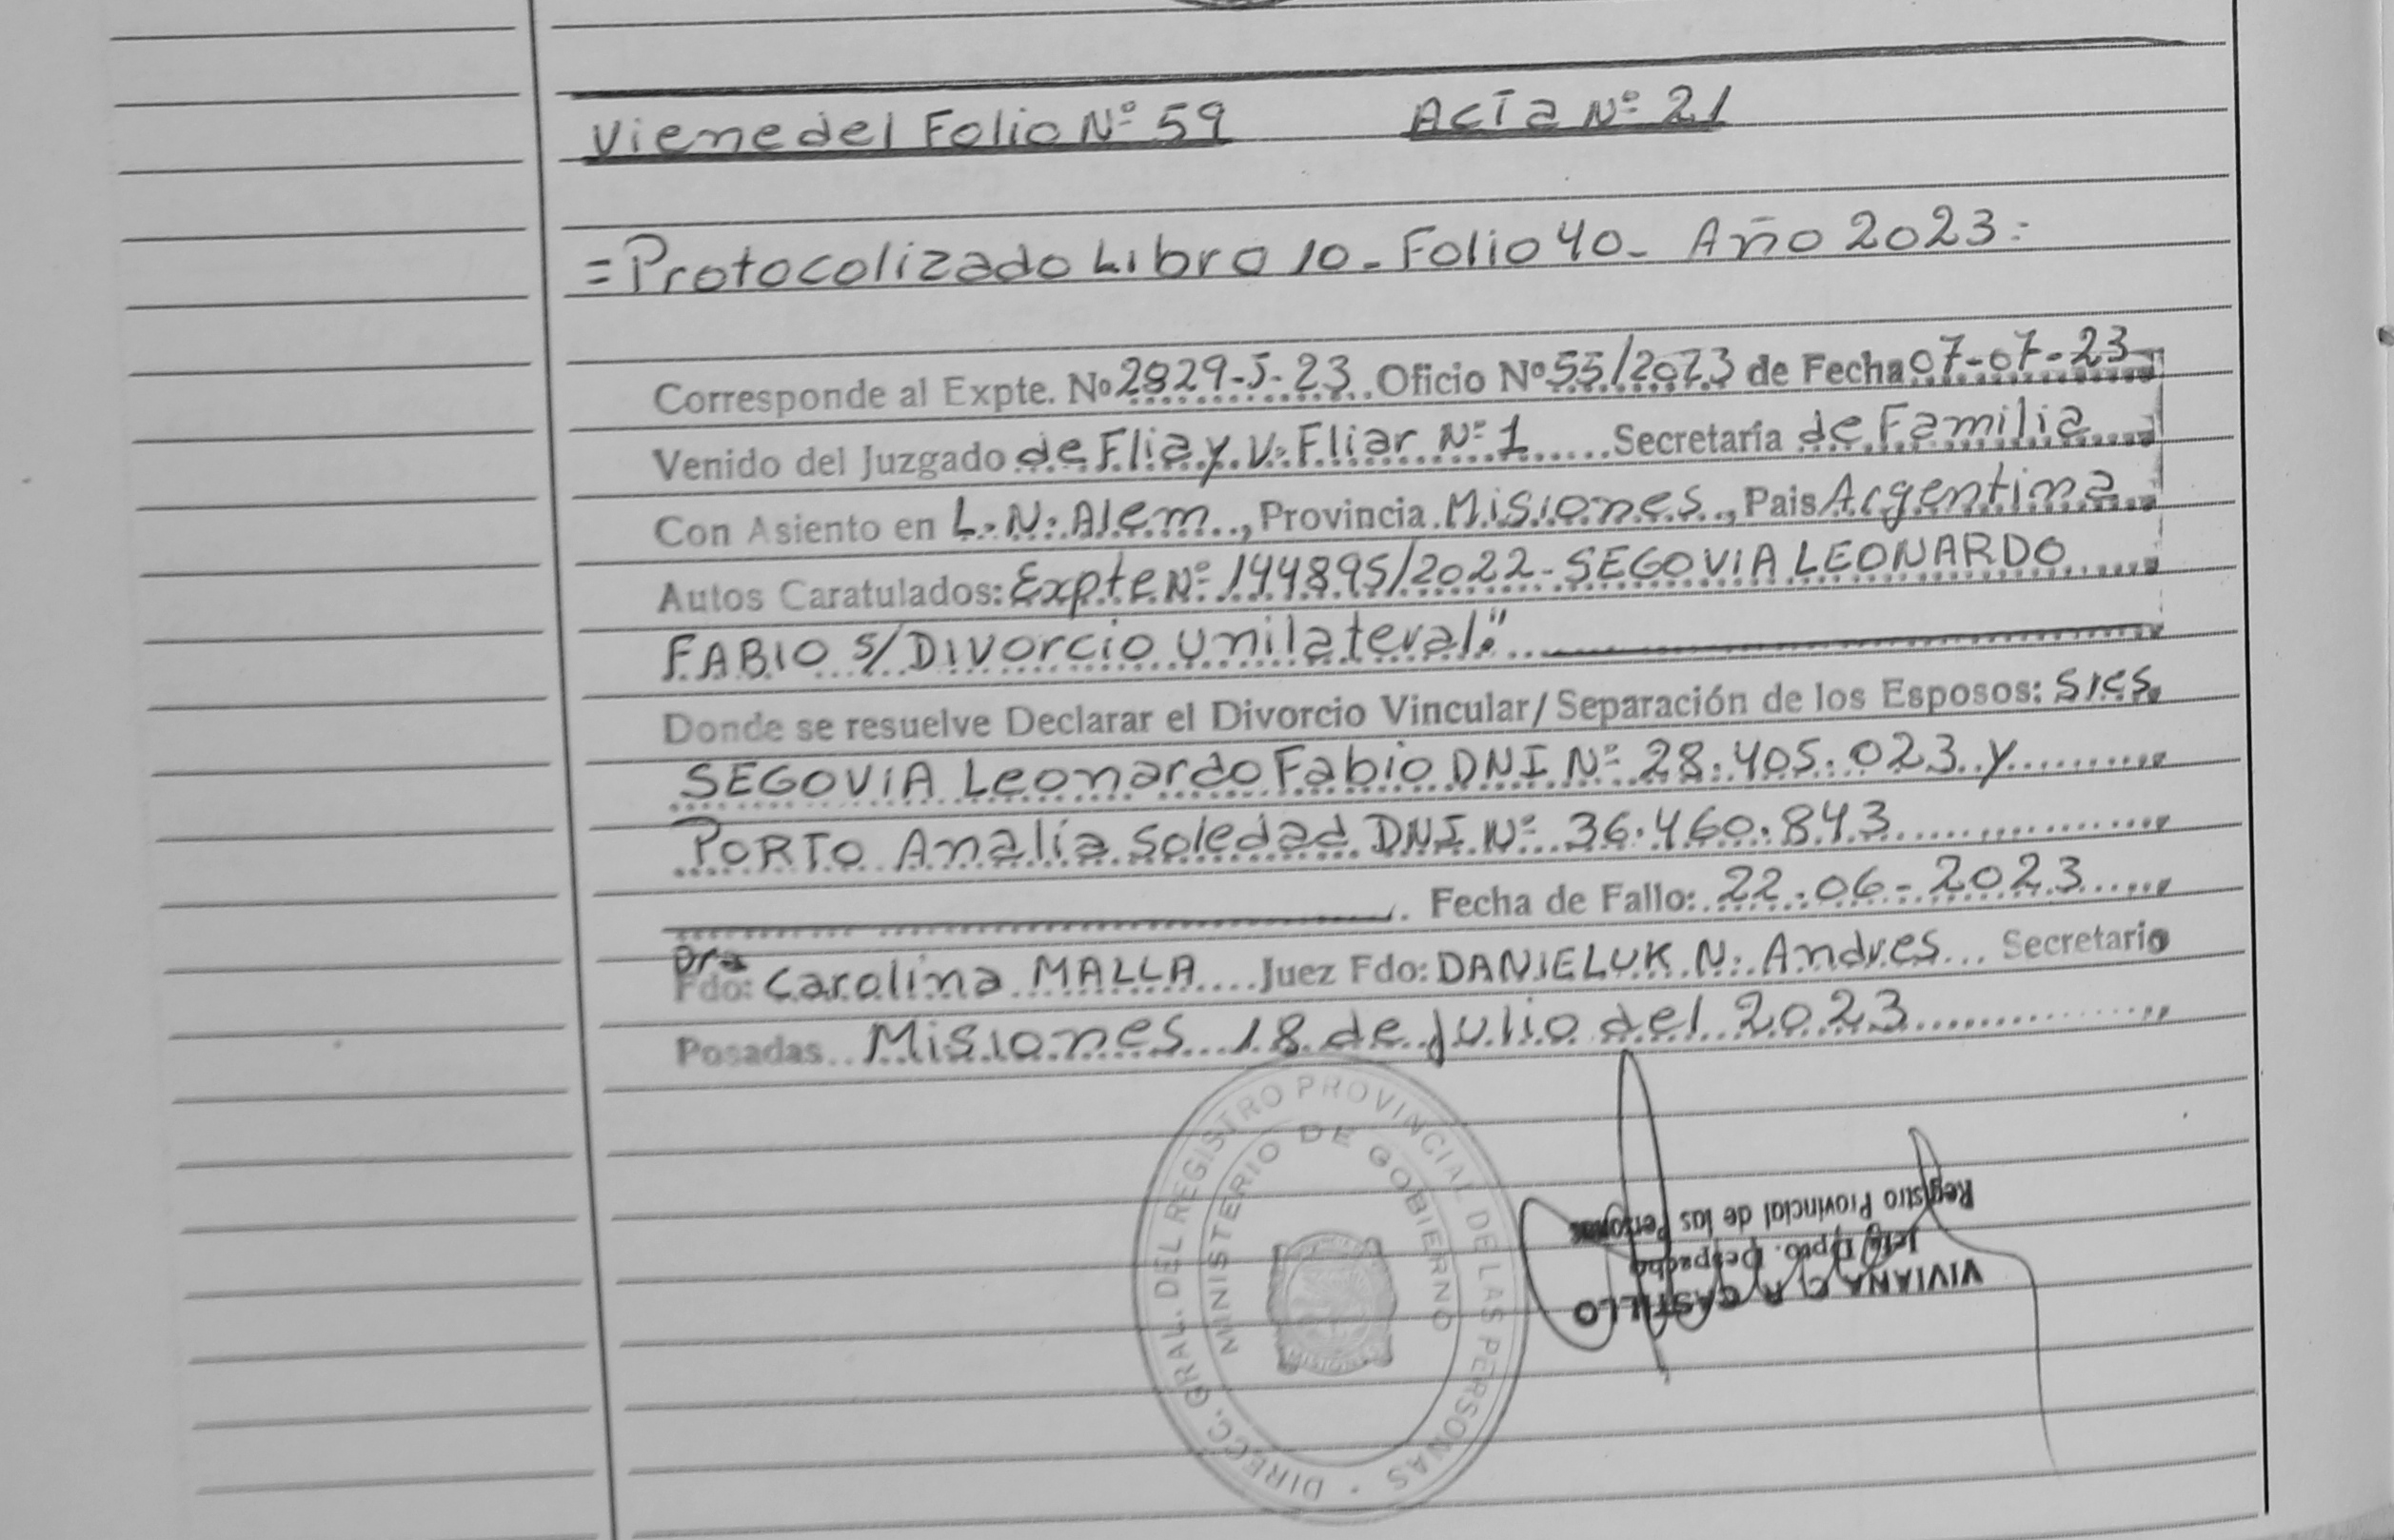 Viene del Folio Nº 59 Acta Nº 21
=Protocolizado Libro 10- Folio 40- Año 2023=
Corresponde al Expte. Nº 2829-J-23 Oficio Nº 55/2023 de Fecha 07-07-23
Venido del Juzgado de Flia y V. Fliar Nº 1 Secretaría de Familia
Con Asiento en L. N. Alem, Provincia Misiones, Pais Argentina
Autos Caratulados: Expte Nº 144895/2022- SEGOVIA LEONARDO
FABIO s/ Divorcio unilateral."
Donde se resuelve Declarar el Divorcio Vincular/Separación de los Esposos:
SEGOVIA Leonardo Fabio DNI Nº 28.405.023 y
PORTO Analia Soledad DNI Nº 36.460.843
Fecha de Fallo: 22-06-2023
Dra
Fdo: Carolina MALLA Juez Fdo: DANIELUK N. Andres Secretario
Posadas Misiones 18 de julio del 2023
DIRECC. GRAL. DEL REGISTRO PROVINCIAL DE LAS PERSONAS
MINISTERIO DE GOBIERNO
MISIONES
VIVIANA CASTILLO
Jefe Dpto. Despacho
Registro Provincial de las Personas